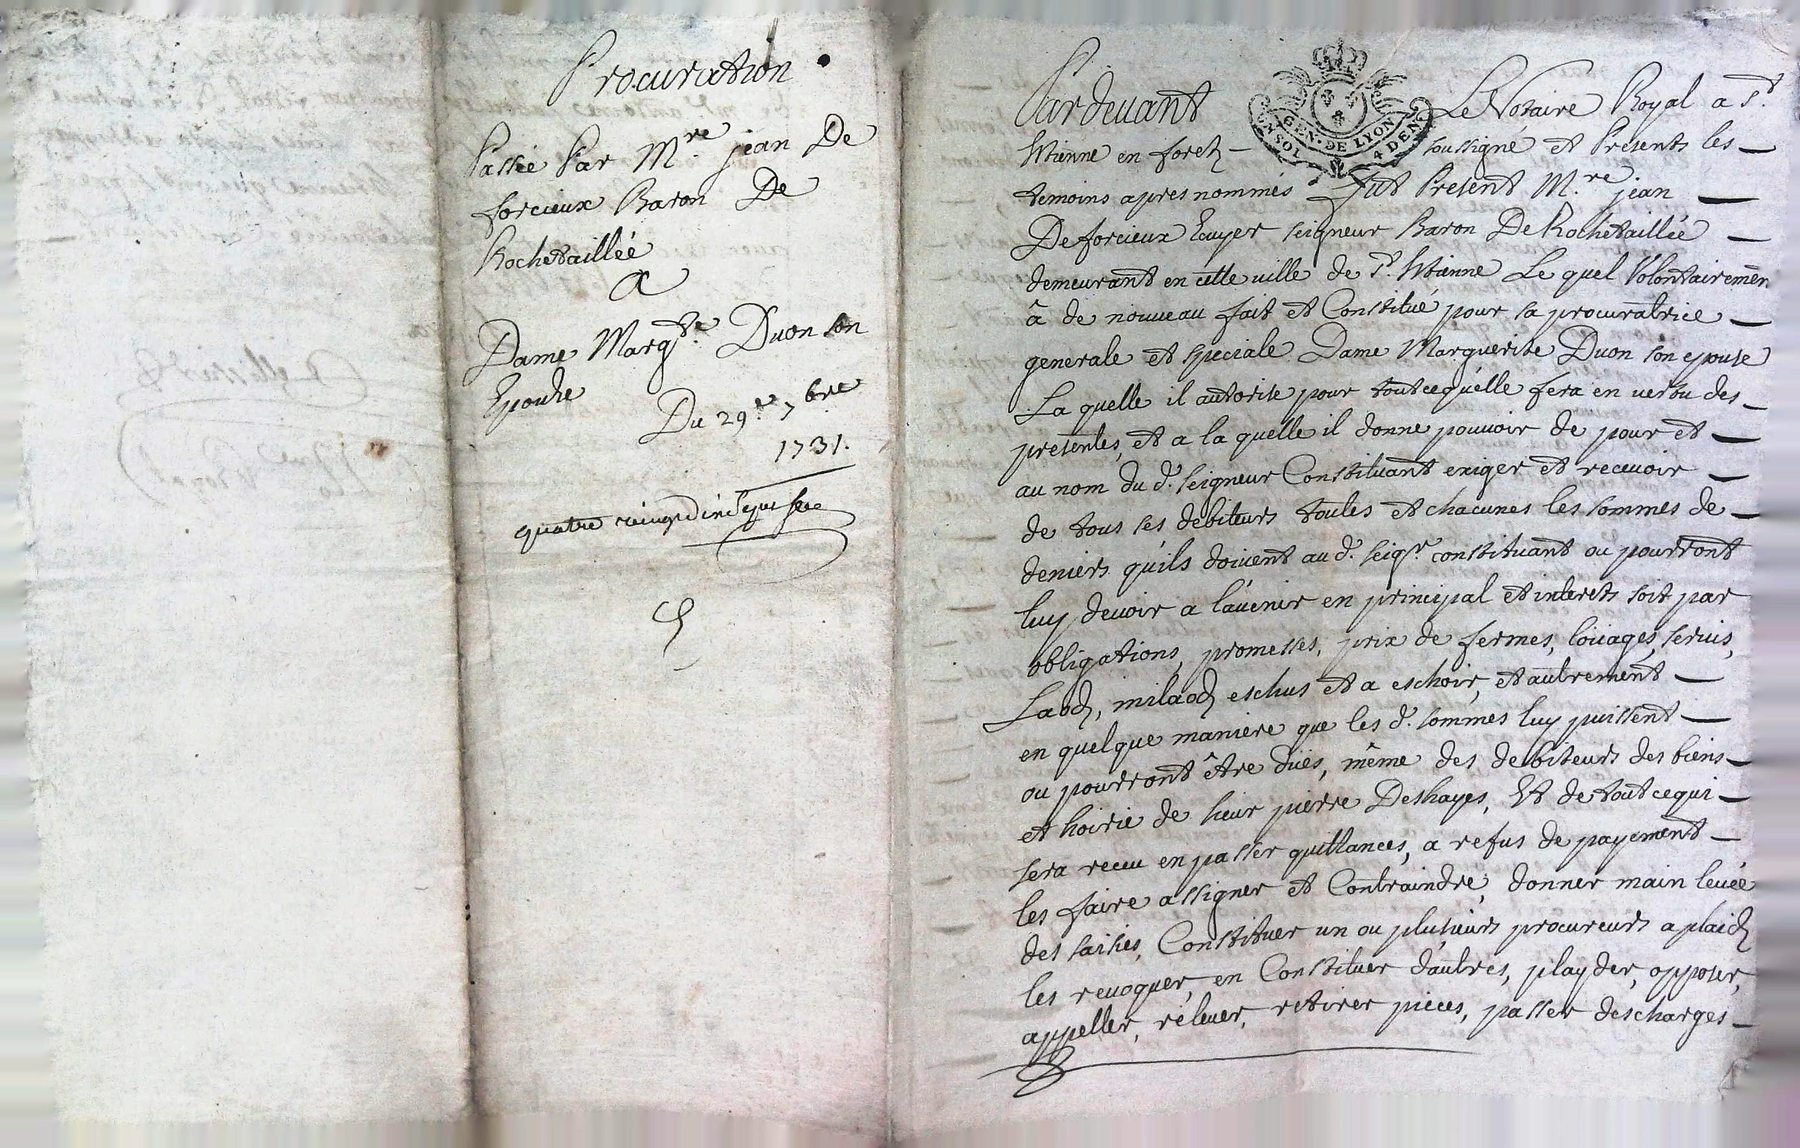 Procuration
Passée Par M.re jean De
forcieux Baron De
Rochetaillée
a
Dame Marg.te Duon son
Epouze
Du 29.e 7bre
1731.
quatre
Pardevant Le Notaire Royal a St.
GEN. DE LYON
UN SOL 4 DEN
Etienne en forez soussigné et Presents les
temoins apres nommés fut Present M.re jean
De forcieux Ecuyer seigneur Baron De Rochetaillée
demeurant en cette ville de St. Etienne Le quel Volontairemen
â de nouveau fait et Constitué pour sa procuratrice
generale et speciale Dame Marguerite Duon son epouse
La quelle il autorise pour tout cequ'elle fera en vertu des
presentes, et a la quelle il donne pouvoir de pour et
au nom du d. seigneur Constituant exiger et recevoir
de tous ses debiteurs toutes et chacunes les sommes de
deniers qu'ils doivent au d. seigr. constituant ou pourront
luy devoir a l'avenir en principal et interets soit par
obligations, promesses, prix de fermes, loüages, servis,
Laods, milaods eschus et a eschoir, et autrement
en quelque maniere que les d. sommes luy puissent
ou pourront être düès, même des debiteurs des biens
et hoirie de sieur pierre Deshayes, Et de tout cequi
sera receu en passer quittances, a refus de payement
les faire assigner et Contraindre, donner main levée
des saisies, Constituer un ou plusieurs procureurs a plaids
les revoquer, en Constituer d'autres, playder, opposer,
appeller, relever, retirer pieces, passer descharges